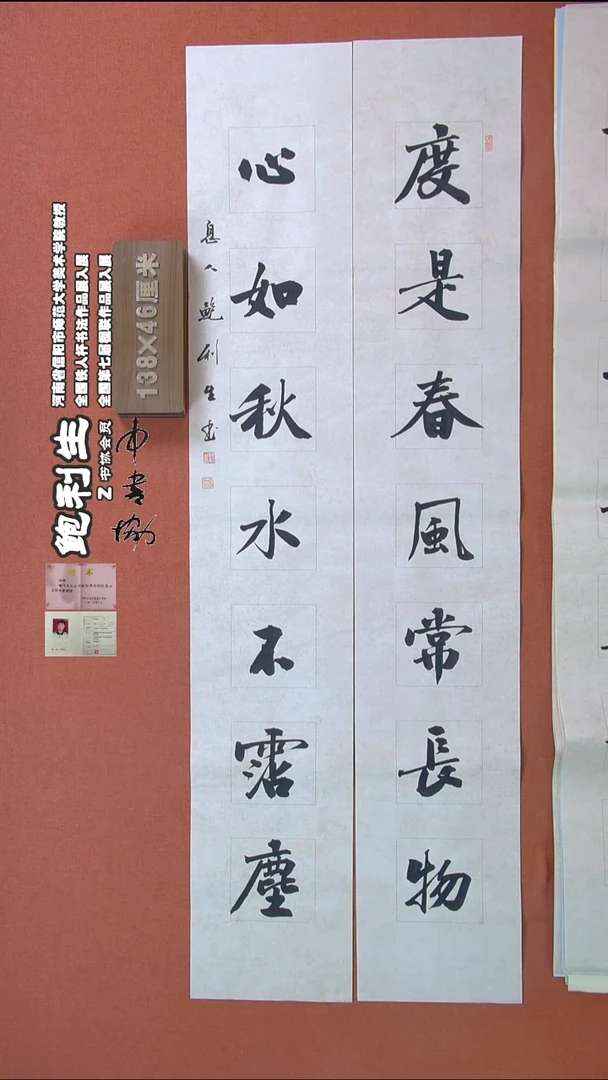 度是春風常長物
心如秋水不霑塵
息人鲍利生书
138×46厘米
河南省信阳市师范大学美术学院教授
全国铁人杯书法作品展入展
全国第七届楹联作品展入展
鲍利生
书协会员
中书协